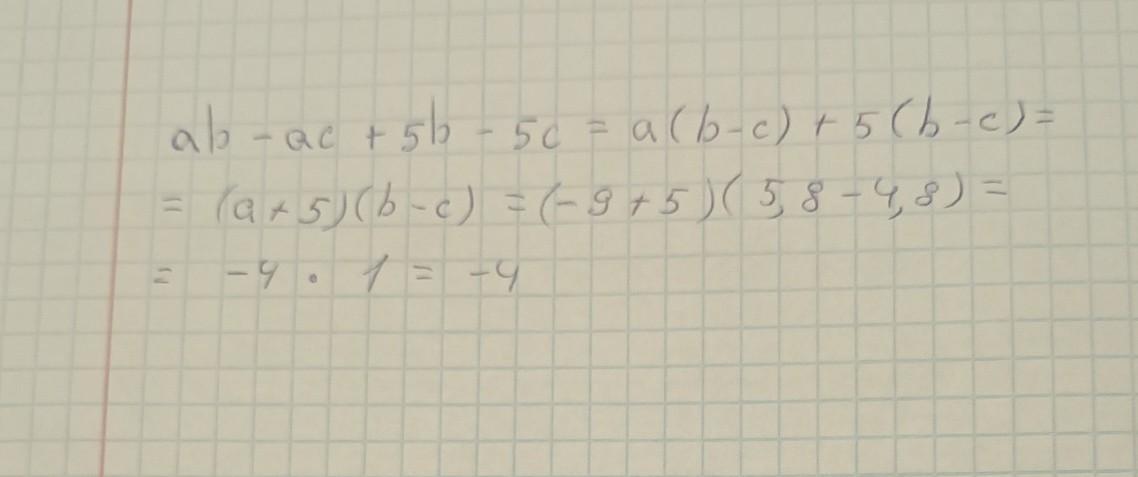 ab - ac + 5b - 5c = a(b-c) + 5(b-c) =
= (a+5)(b-c) = (-9+5)(5,8-4,8) =
= -4 · 1 = -4